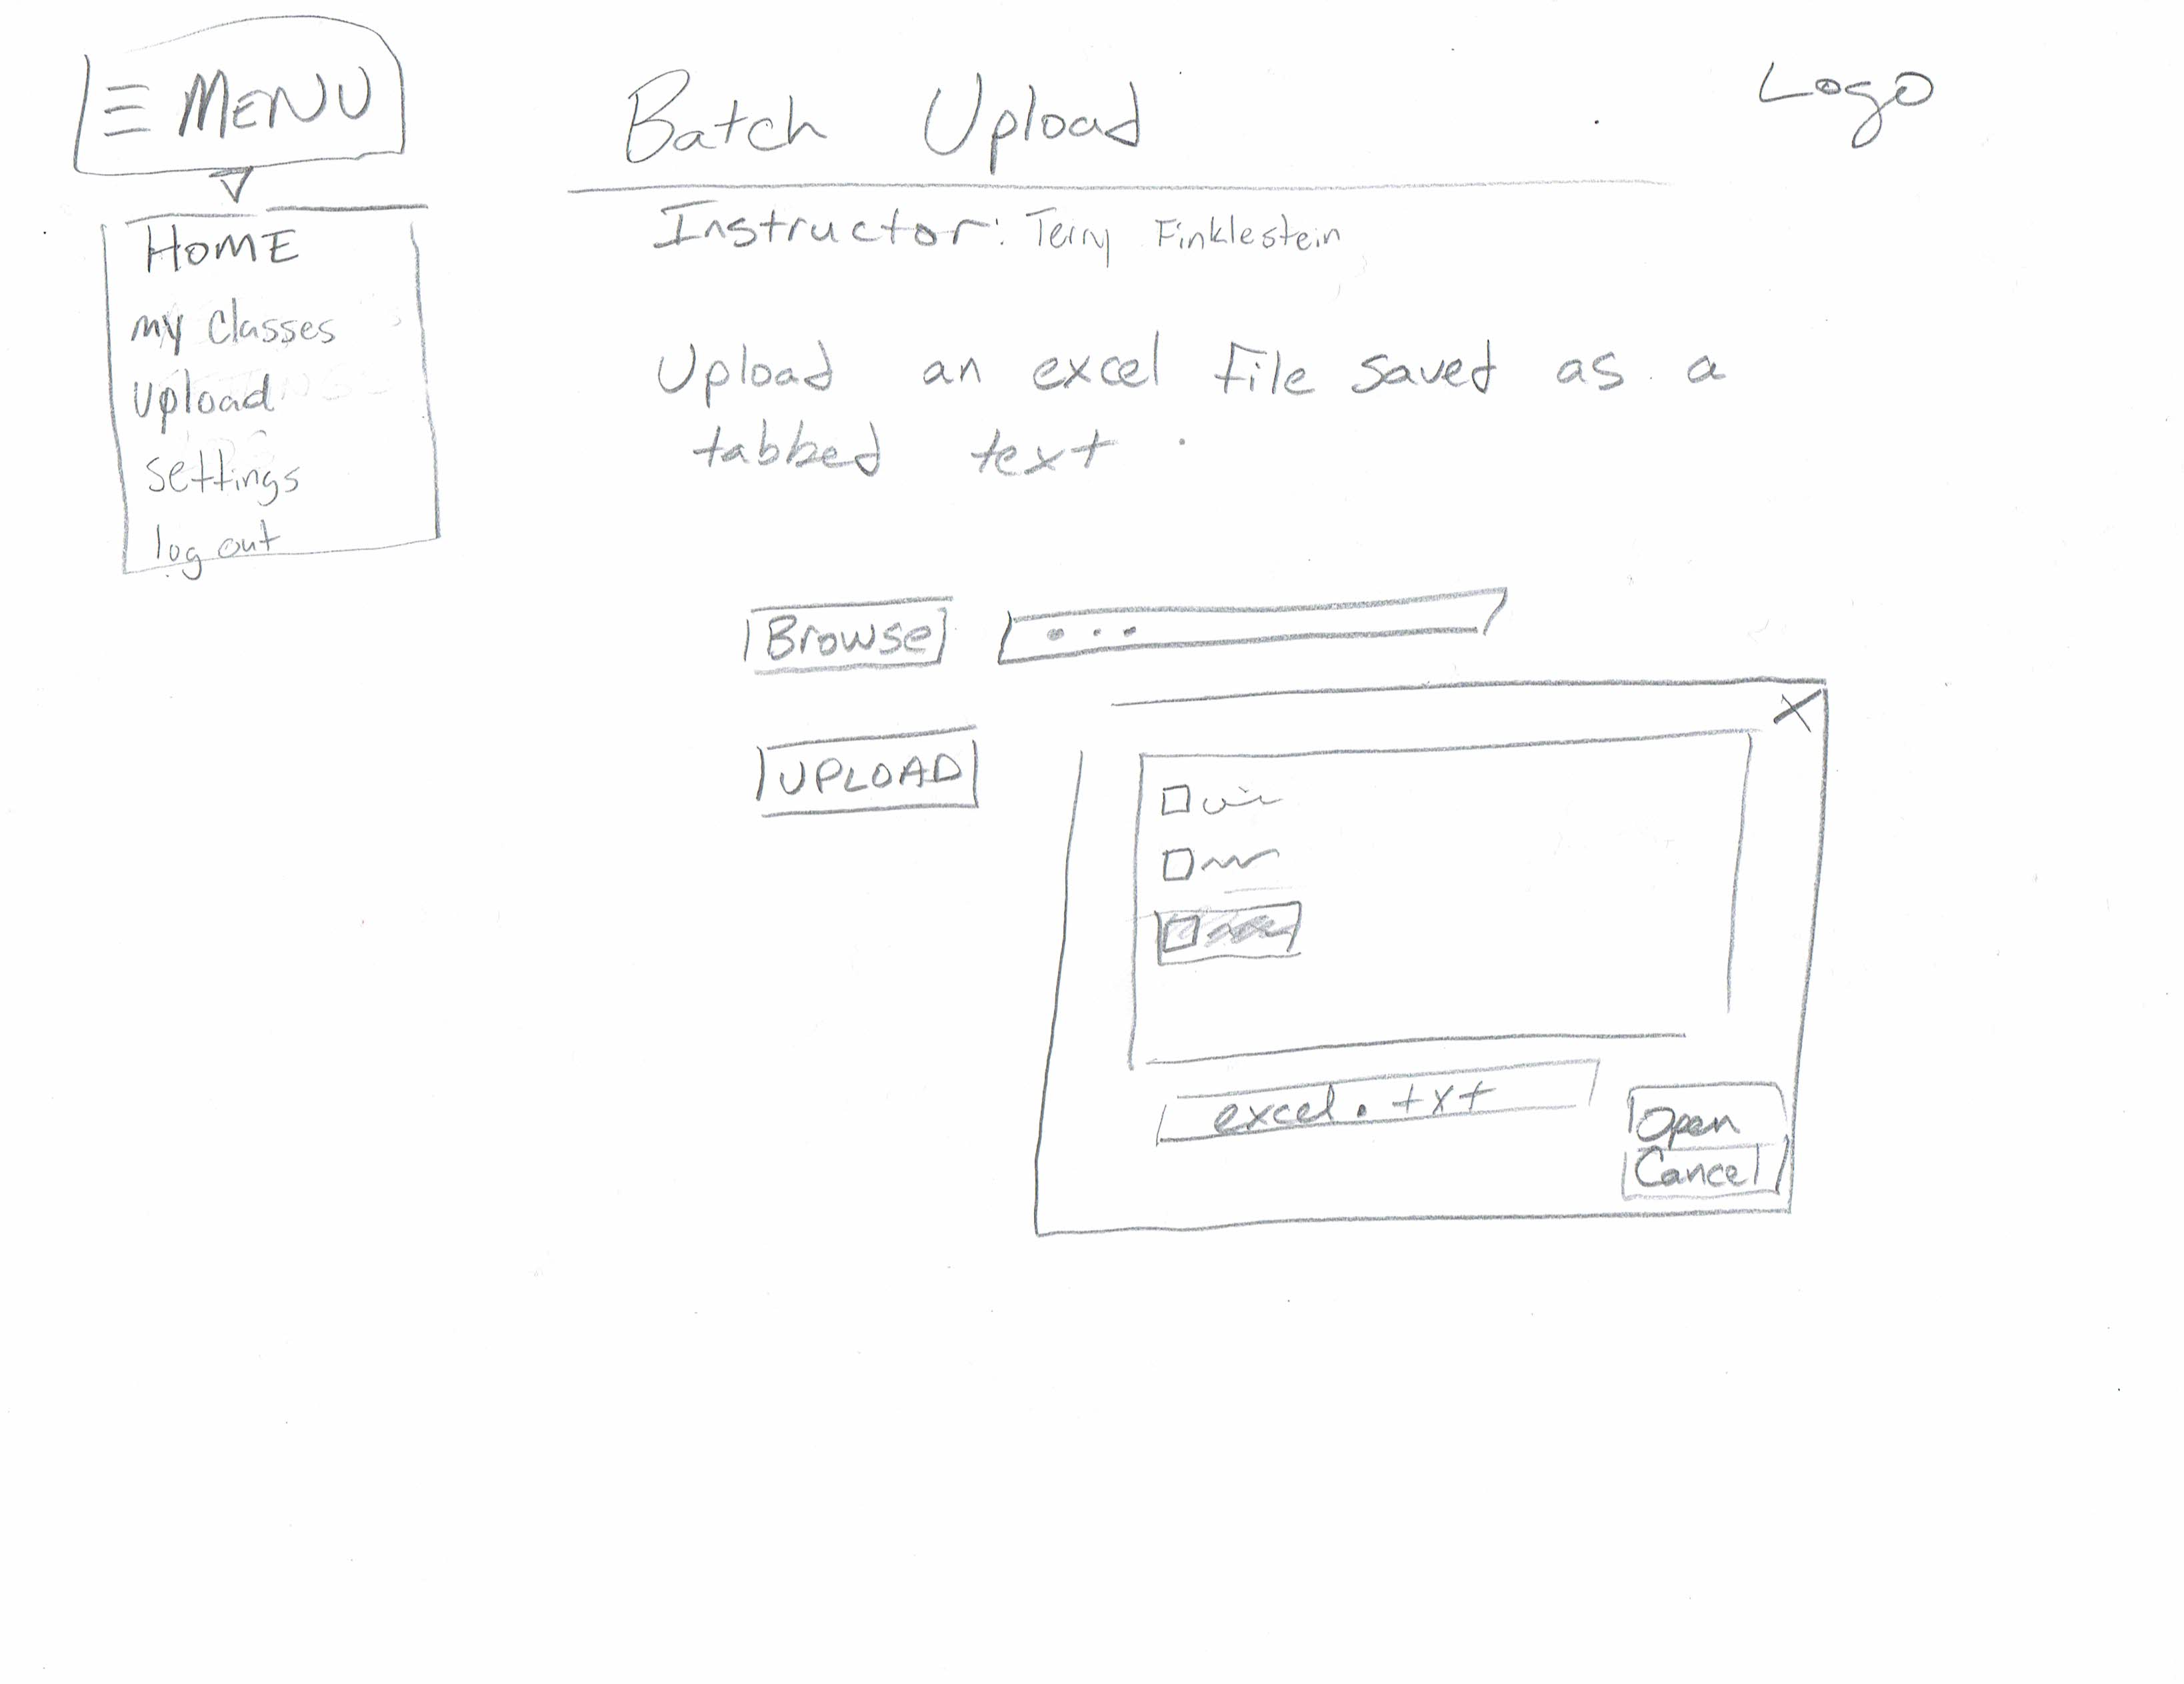 MENU
HOME
my Classes
Upload
settings
log out
Batch Upload
Logo
Instructor: Terry Finklestein
Upload an excel file saved as a
tabbed text
Browse
...
UPLOAD
X
excel.txt
Open
Cancel